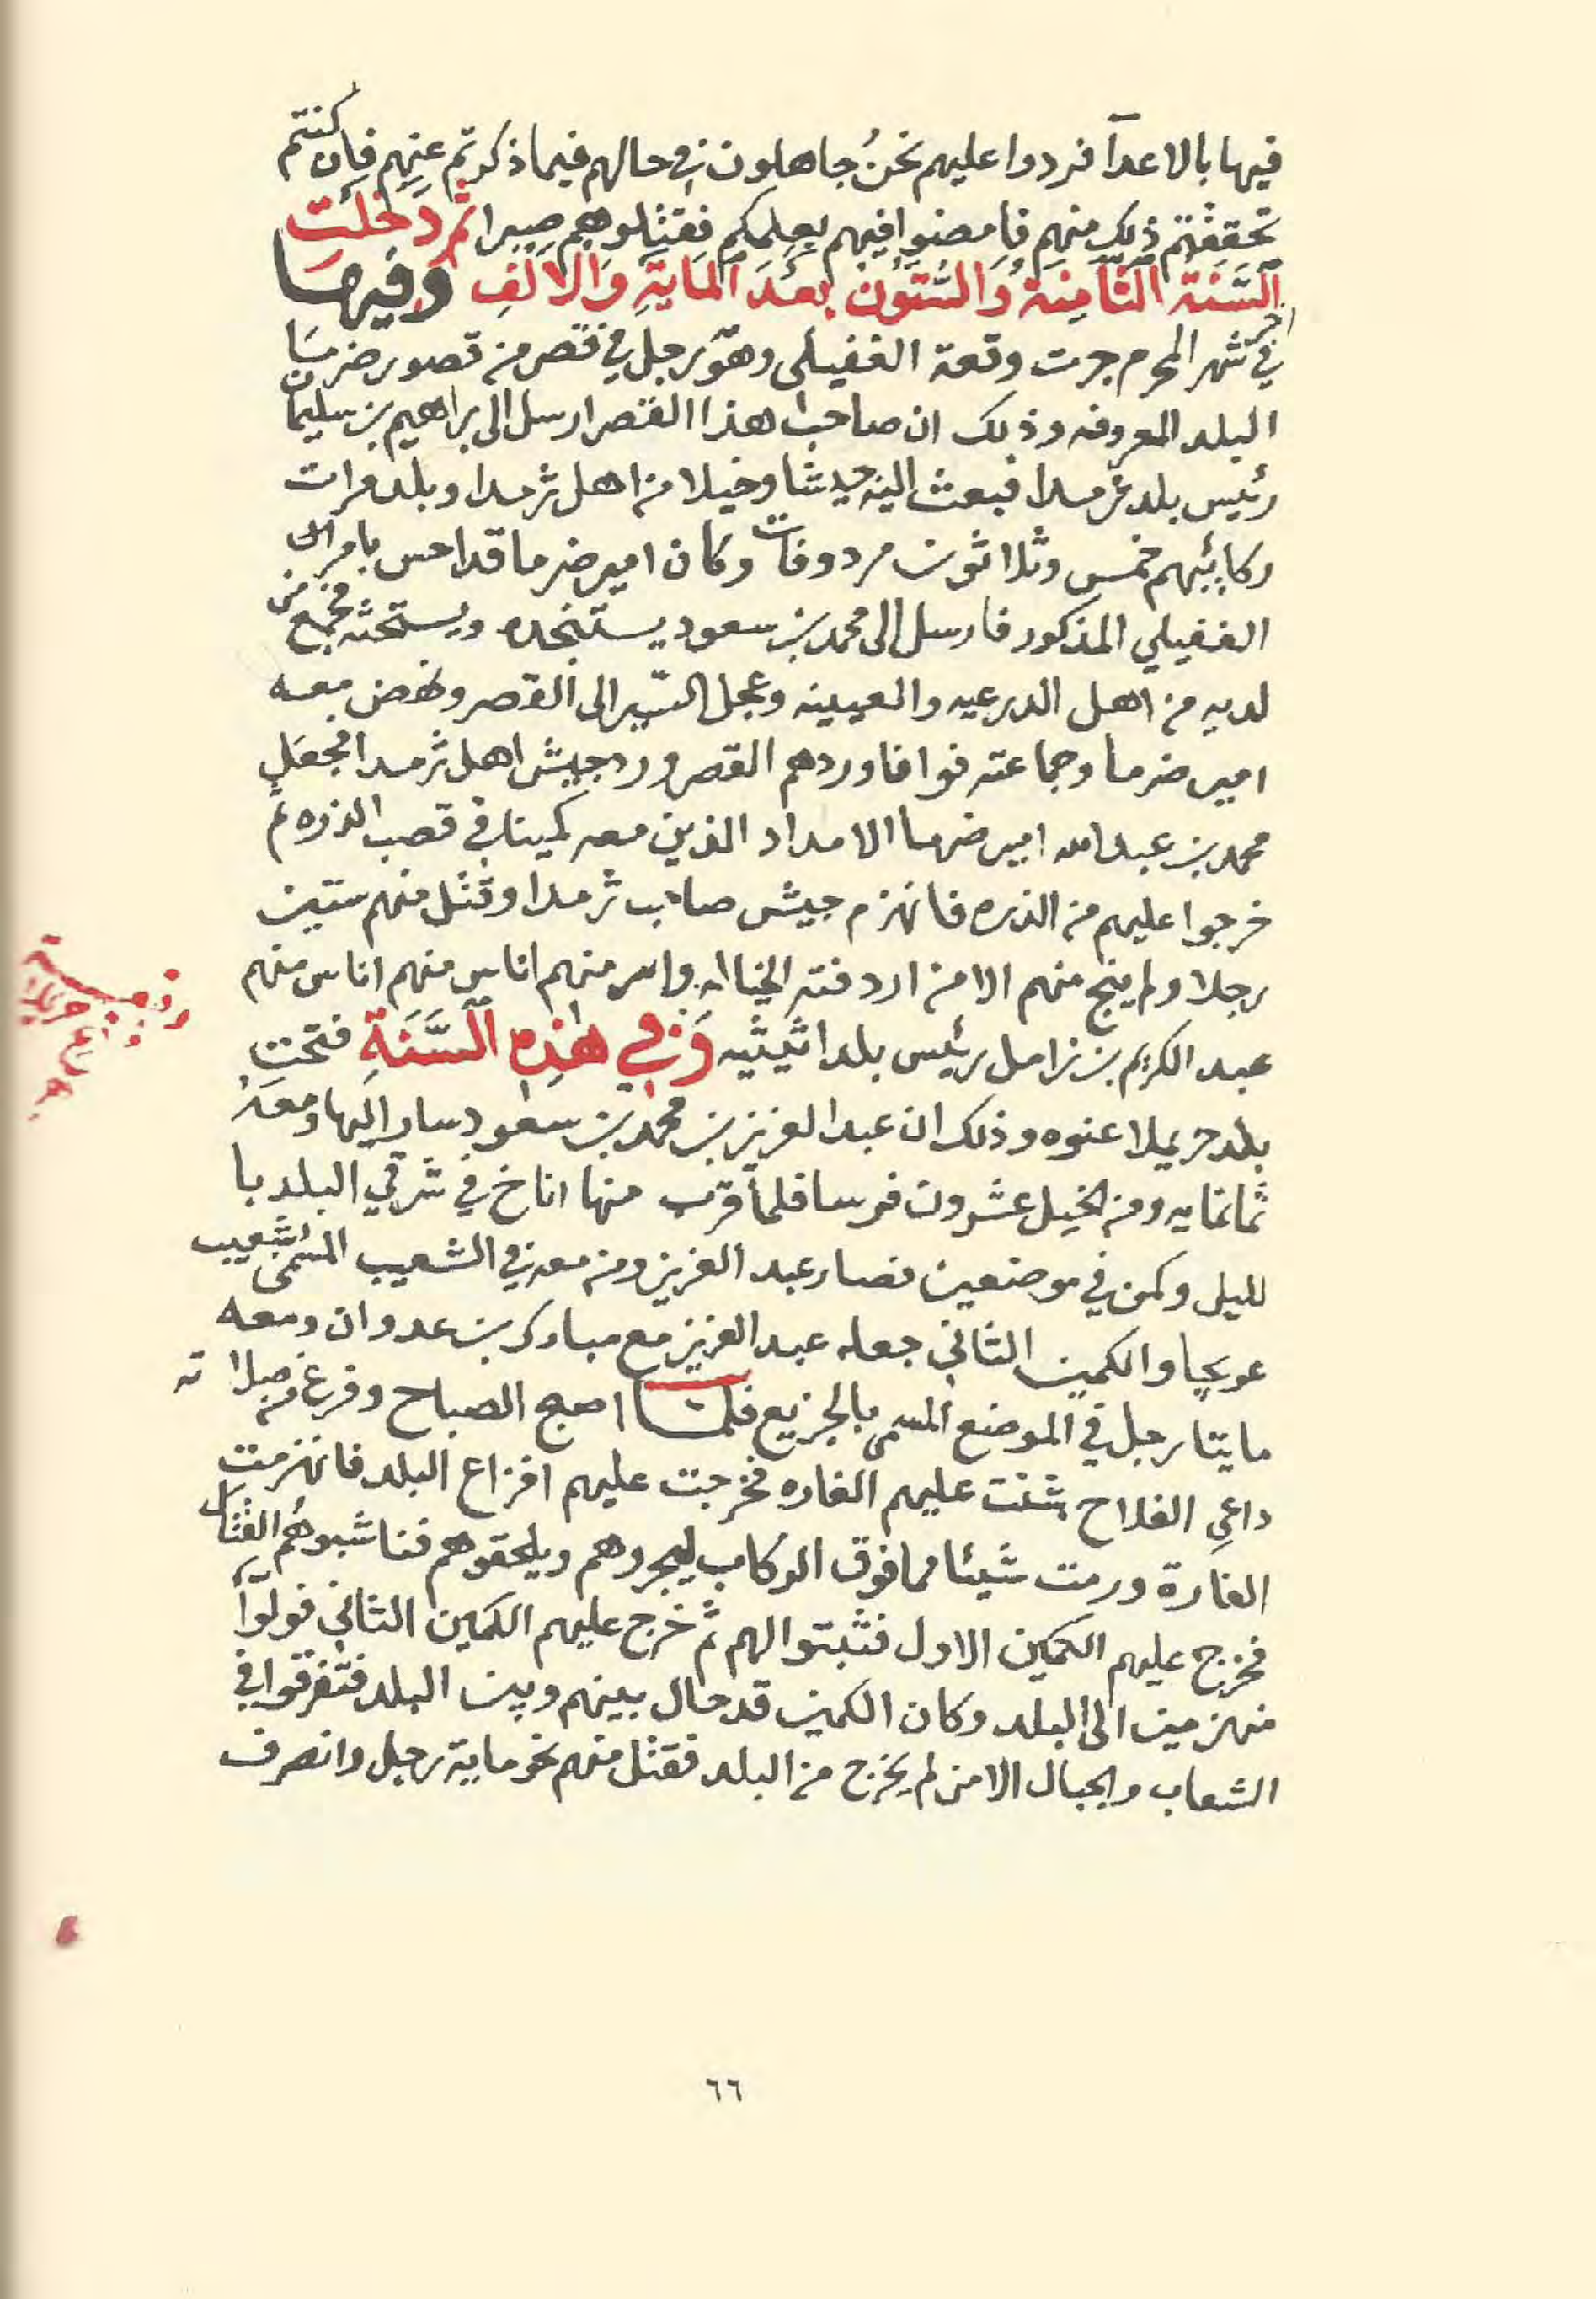 فيها بالاعدآ فردوا عليهم نحنُ جاهلون في حالهم فيما ذكرتم عنهم فان كنتم
تحققتم ذلك منهم فامضوا فيهم بعلمكم فقتلوهم صبرا ثم دخلت
السَّنَة الثامِنَة وَالسُّتوُن بعدَ المايَةِ وَالالفِ وَفيهَا
في اخر شهر المحرم جرت وقعة الغفيلى وهو رجل في قصر من قصور ضرمَا
البلد المعروفه وذلك ان صاحب هذا القصر ارسل الى براهيم بن سليمان
رئيس بلد ثرمدا فبعث اليه جيشا وخيلا من اهل ثرمدا وبلد مرات
ركابيهم خمس وثلاثون مردوفات وكان امير ضرما قد احس بامر
الغفيلي المذكور فارسل الى محمد بن سعود يستنجده ويستحثه فجمع من
لديه من اهل الدرعيه والعيينه وعجل السّير الى القصر ونهض معه
امير ضرما وجماعته فوافا وردهم القصر ورد جيش اهل ثرمدا فجعل
محمد بن عبدالله امير ضرما الامداد الذين معه كمينا في قصب الذره ثم
خرجوا عليهم من الذره فانهزم جيش صاحب ثرمدا وقتل منهم ستين
رجلا ولم ينج منهم الا من اردفته الخياله واسر منهم اناس منهم اناس منهم
عبد الكريم بن زامل رئيس بلد اثيثيه وَفي هٰذِه السَّنَةِ فتحت
بلد حريملا عنوه وذلك ان عبد العزيز بن محمد بن سعود سار اليها ومعَهُ
ثمانمايه ومن الخيل عشرون فرسا فلما قرب منها اناخ في شرقي البلد با
لليل وكمن في موضعين فصار عبد العزيز ومن معه في الشعيب المسمى شعيب
عويجا والكمين الثاني جعله عبد العزيز مع مبارك بن عدوان ومعه
مايتا رجل في الموضع المسمى بالجزيع فلمــا اصبح الصباح وفرغ من صلاته
داعي الفلاح شنت عليهم الغاره فخرجت عليهم افزاع البلد فانهزمت
الغارة ورمت شيئا مما فوق الركاب ليجروهم ويلحقوهم فناشبوهُم القتال
فخرج عليهم الكمين الاول فثبتوا لهم ثم خرج عليهم الكمين الثاني فولوّا
منهزمين الى البلد وكان الكمين قد حال بينهم وبين البلد فتفرقوا في
الشعاب والجبال الا من لم يخرج من البلد فقتل منهم نحو ماية رجل وانصرف
٦٦